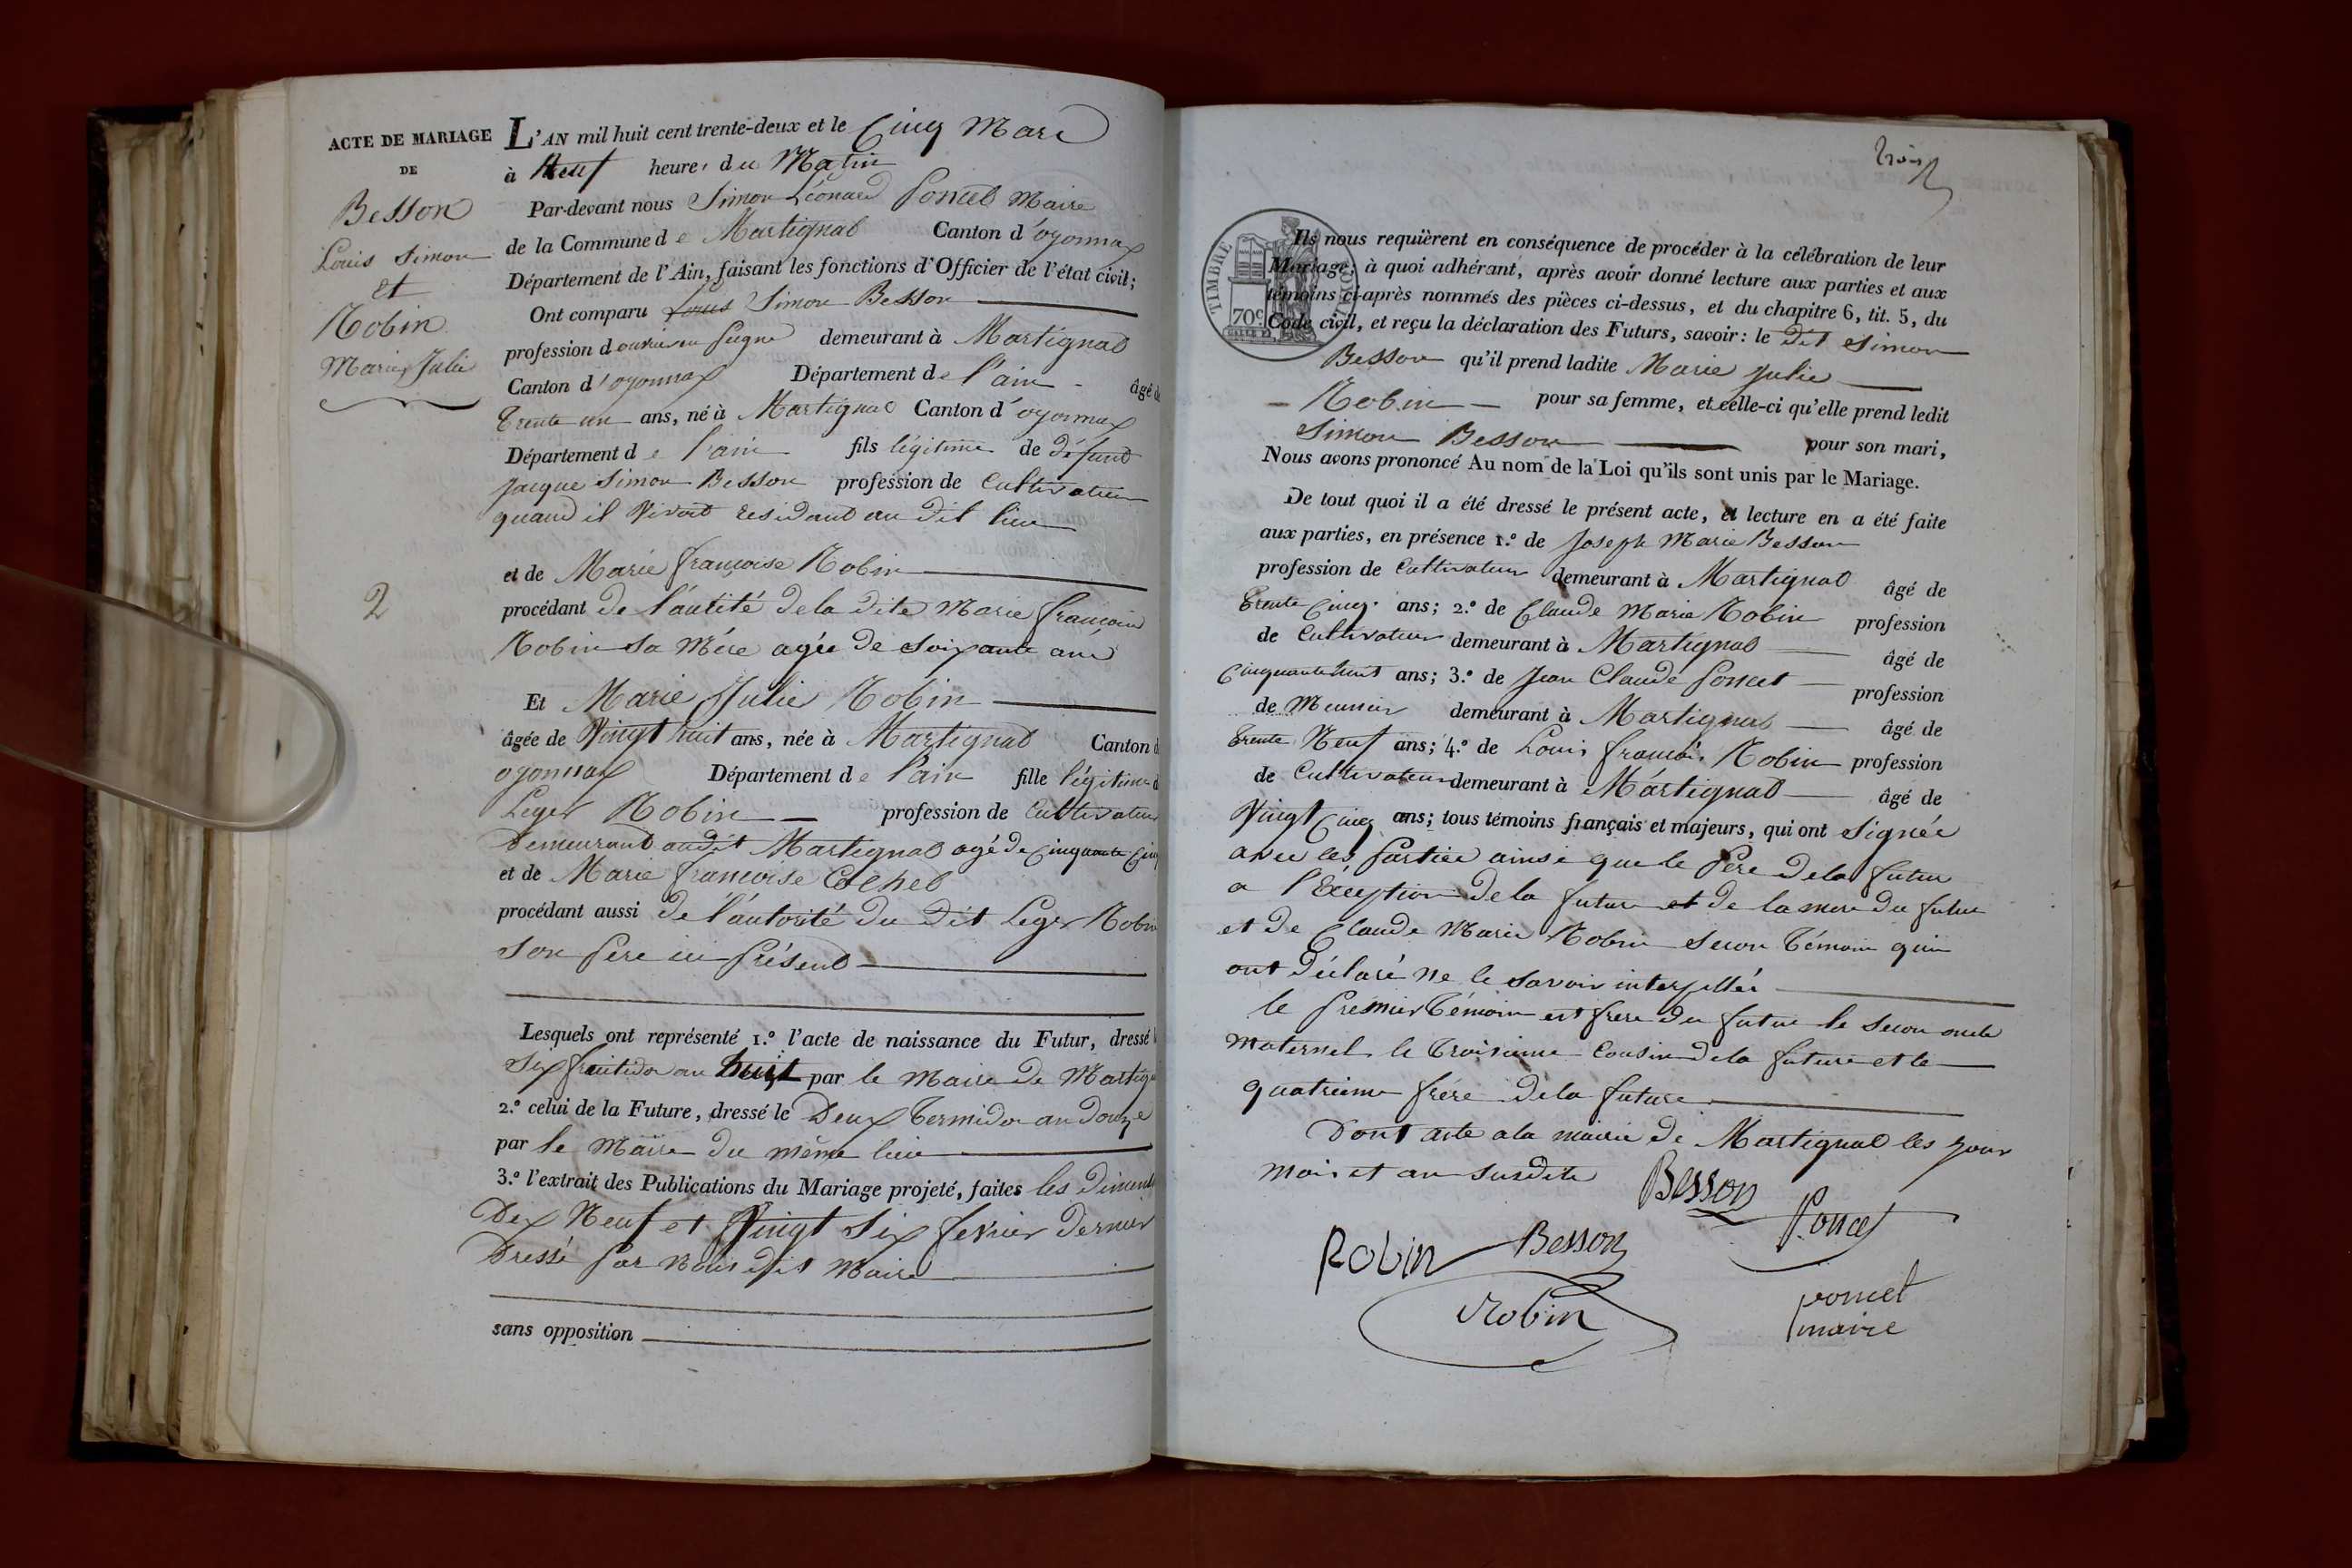 ACTE DE MARIAGE
DE
Besson
Louis Simon
et
Robin
Marie Julie
2
L'AN mil huit cent trente-deux et le Cinq Mars
à Neuf heures du Matin
Par-devant nous Simon Léonard Poncet Maire
de la Commune de Martignat Canton d'oyonnax
Département de l'Ain, faisant les fonctions d'Officier de l'état civil;
Ont comparu Louis Simon Besson
profession d'ouvrier en peigne demeurant à Martignat
Canton d'oyonnax Département de l'ain âgé de
Trente un ans, né à Martignat Canton d'oyonnax
Département de l'ain fils légitime de défunt
Jacque Simon Besson profession de Cultivateur
quand il Vivoit residant au dit lieu
et de Marie françoise Robin
procédant de l'autité de la dite Marie françoise
Robin sa Mére agée de soixante ans
Et Marie Julie Robin
âgée de Vingt huit ans, née à Martignat Canton d
oyonnax Département de l'ain fille légitime d
Leger Robin profession de Cultivateur
Demeurant audit Martignat agé de Cinquante Cinq
et de Marie françoise
procédant aussi de l'autorité du dit Leger Robin
son pere ici présent
Lesquels ont représenté 1.º l'acte de naissance du Futur, dressé
Six fruitidor an huit par le Maire de Martig
2.º celui de la Future, dressé le Deux Termidor an Douze
par le Maire du même lieu
3.º l'extrait des Publications du Mariage projeté, faites les dimen
Dix Neuf et Vingt Six fevrier dernier
Dressé par Nous dit Maire
sans opposition
trois
TIMBRE ROYAL
70c
Ils nous requièrent en conséquence de procéder à la célébration de leur
Mariage; à quoi adhérant, après avoir donné lecture aux parties et aux
témoins ci-après nommés des pièces ci-dessus, et du chapitre 6, tit. 5, du
Code civil, et reçu la déclaration des Futurs, savoir: le dit Simon
Besson qu'il prend ladite Marie Julie
Robin pour sa femme, et celle-ci qu'elle prend ledit
Simon Besson pour son mari,
Nous avons prononcé Au nom de la Loi qu'ils sont unis par le Mariage.
De tout quoi il a été dressé le présent acte, et lecture en a été faite
aux parties, en présence 1.º de Joseph Marie Besson
profession de Cultivateur demeurant à Martignat âgé de
Trente Cinq ans; 2.º de Claude Marie Robin profession
de Cultivateur demeurant à Martignat âgé de
Cinquante huit ans; 3.º de Jean Claude Poncet profession
de Meunier demeurant à Martignat âgé de
Trente Neuf ans; 4.º de Louis françois Robin profession
de Cultivateur demeurant à Martignat âgé de
Vingt Cinq ans; tous témoins français et majeurs, qui ont signée
avec les parties ainsi que le Pere de la future
a l'Exeption de la future et de la mere du futur
et de Claude Marie Robin secon témoin qui
ont déclaré ne le savoir interpellés
le premier témoin est frere du futur le secon oncle
maternel le troisieme Cousin de la future et le
quatrieme frére de la future
Dont acte a la mairie de Martignat les jour
mois et an susdite
Besson
Poncet
Robin
Besson
Robin
poncet
maire